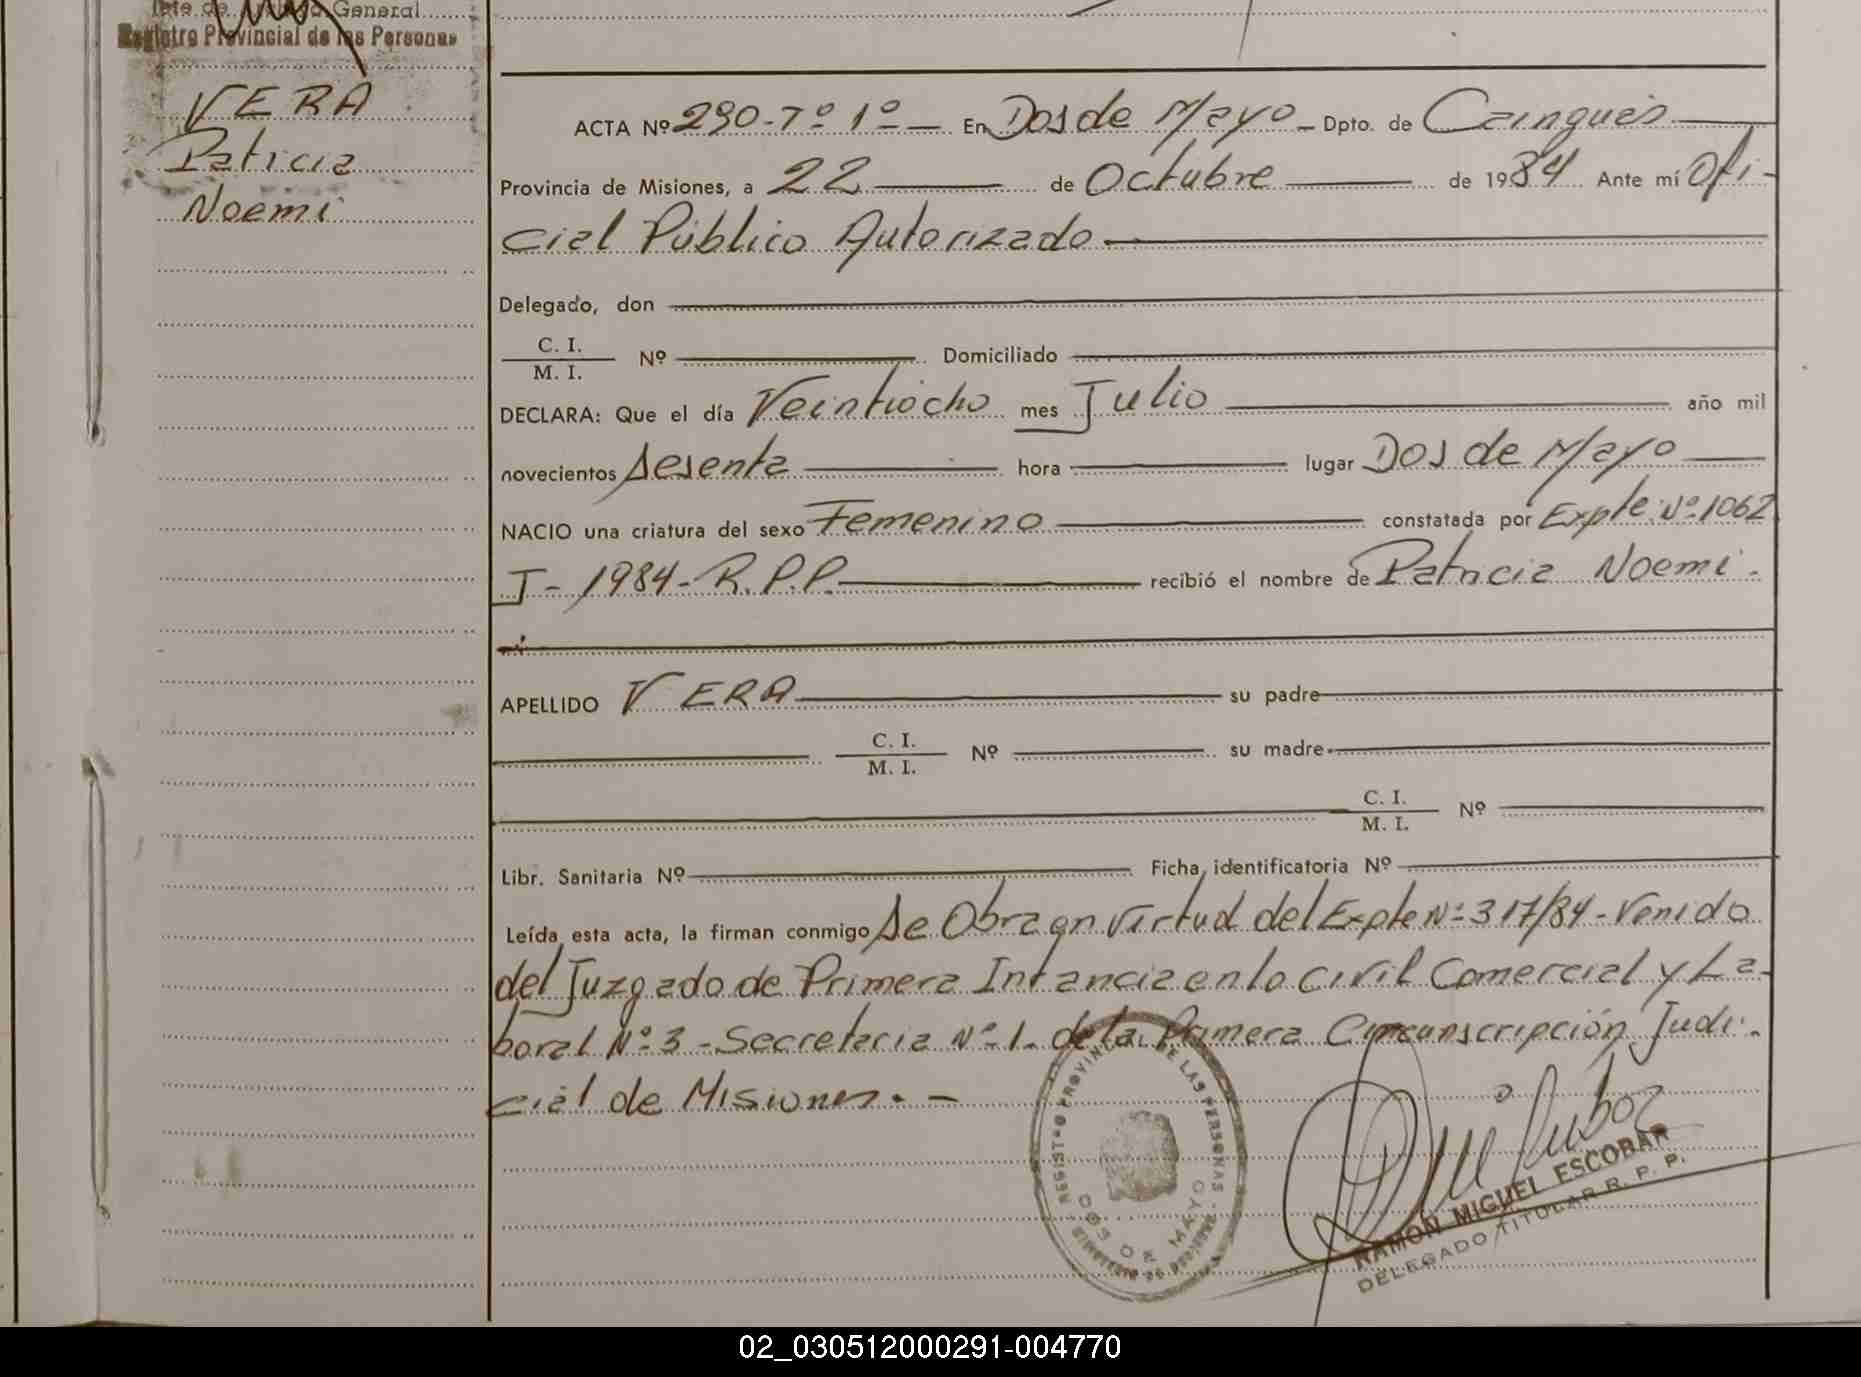 General
Registro Provincial de las Personas
VERA
Patricia
Noemi
ACTA Nº 290-Tº 1º En Dos de Mayo Dpto. de Cainguás
Provincia de Misiones, a 22 de Octubre de 1984 Ante mí Ofi-
cial Público Autorizado
Delegado, don
C. I.
M. I.
Nº Domiciliado
DECLARA: Que el día Veintiocho mes Julio año mil
novecientos sesenta hora lugar Dos de Mayo
NACIO una criatura del sexo Femenino constatada por Expte. Nº 1062
J - 1984 - R.P.P. recibió el nombre de Patricia Noemi.
APELLIDO VERA su padre
C. I.
M. I.
Nº su madre
C. I.
M. I.
Nº
Libr. Sanitaria Nº Ficha identificatoria Nº
Leída esta acta, la firman conmigo Se Obra en Virtud del Expte Nº 317/84 - Venido
del Juzgado de Primera Intancia en lo Civil Comercial y La-
boral Nº 3 - Secretaria Nº 1. de la Primera Circunscripción Judi-
cial de Misiones. -
REGISTRO PROVINCIAL DE LAS PERSONAS
DOS DE MAYO
RAMON MIGUEL ESCOBAR
DELEGADO TITULAR R. P. P.
02_030512000291-004770